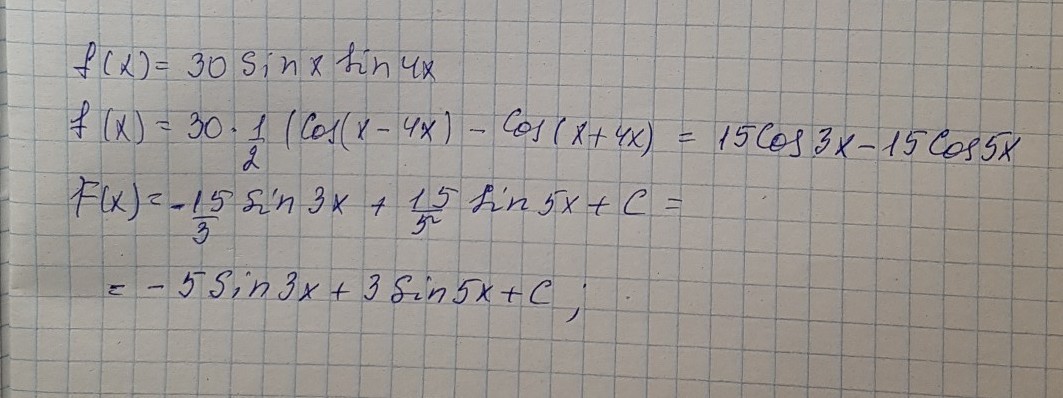 f(x) = 30 Sin x sin 4x
f(x) = 30 · 1/2 (Cos(x - 4x) - Cos(x + 4x) = 15 Cos 3x - 15 Cos 5x
F(x) = - 15/3 Sin 3x + 15/5 Sin 5x + C =
= - 5 Sin 3x + 3 Sin 5x + C ;